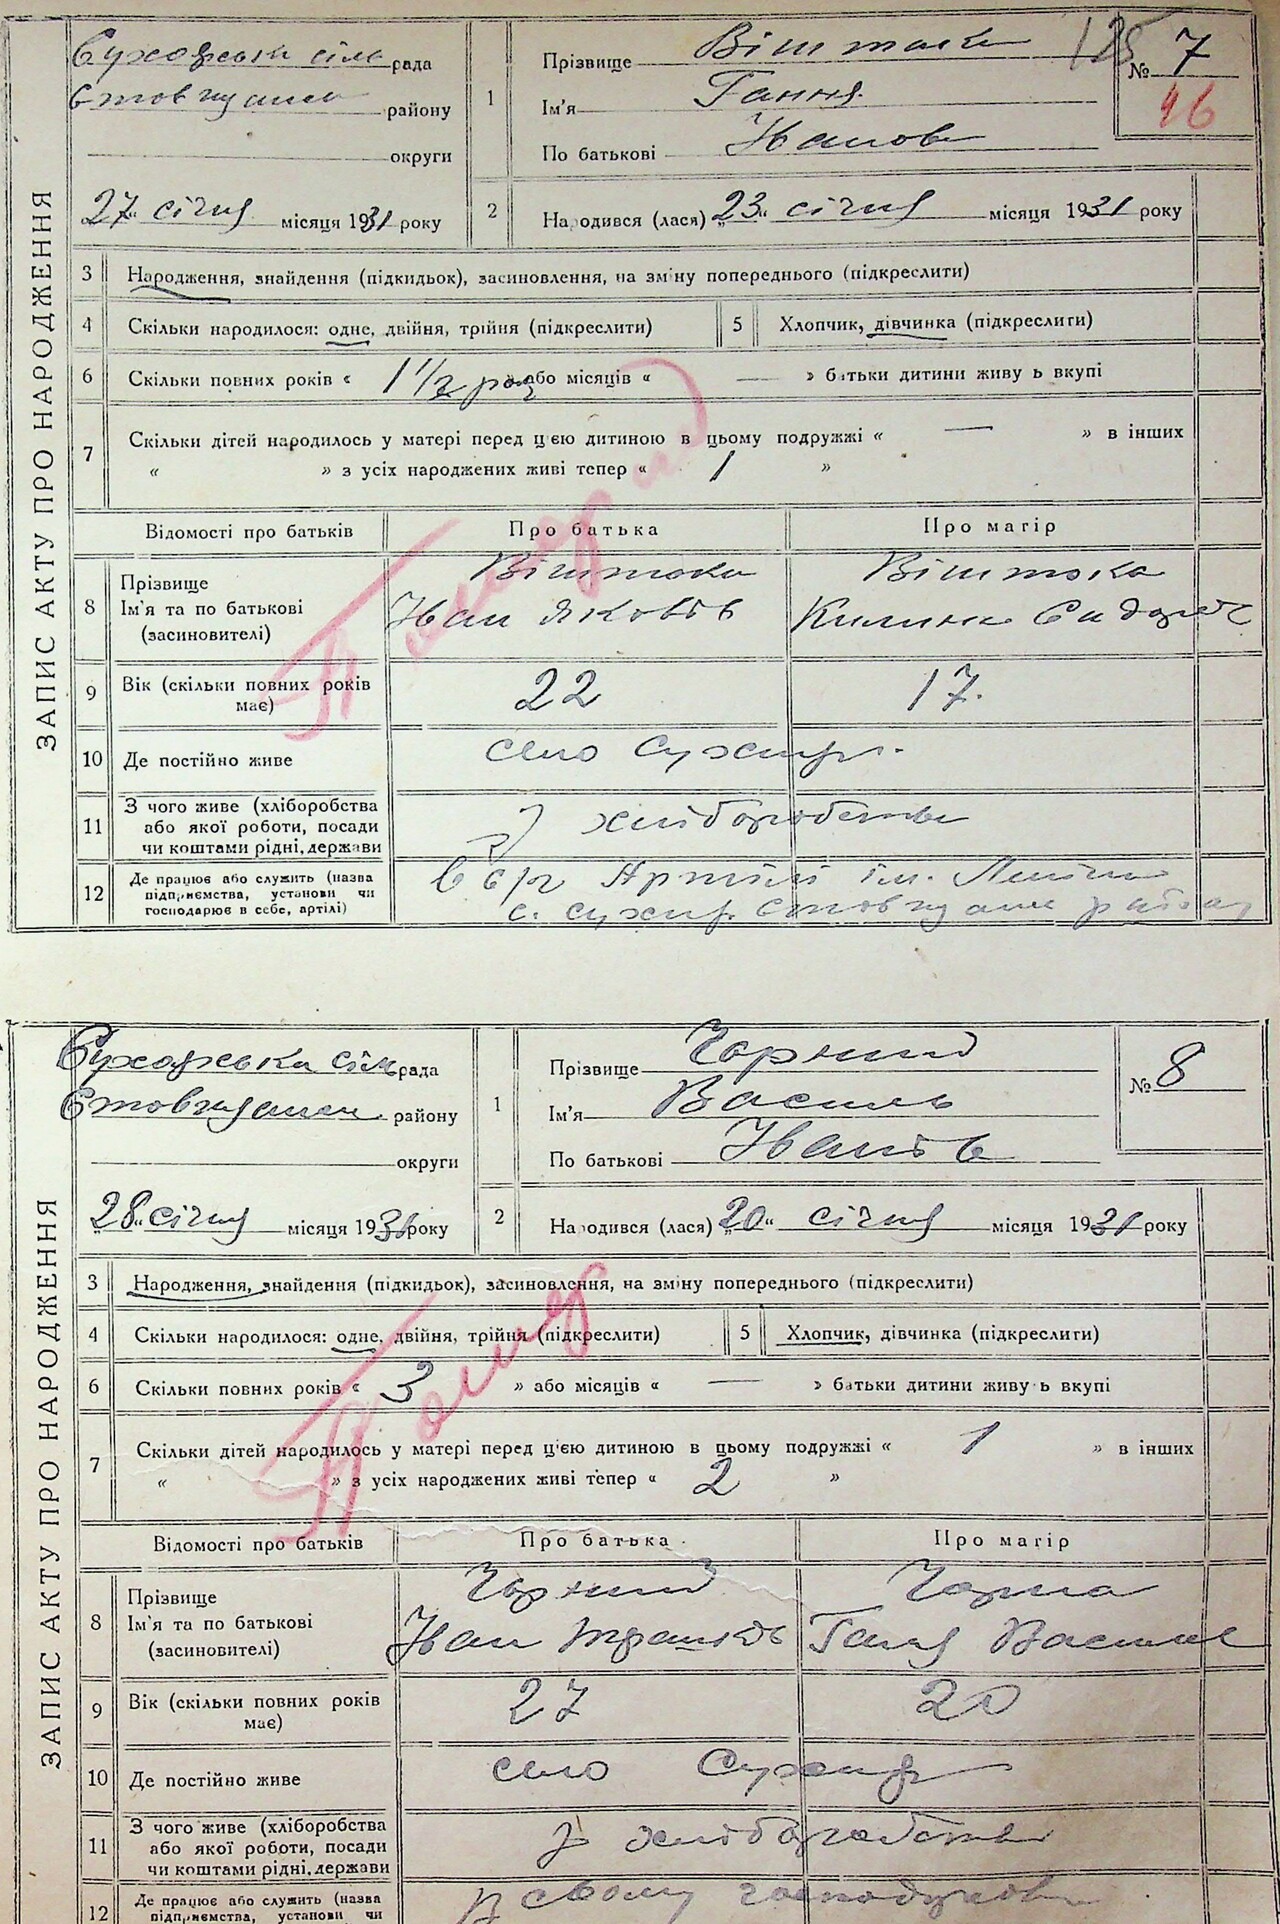 ЗАПИС АКТУ ПРО НАРОДЖЕННЯ
Сухоярська сіль рада
району
округи
27 " січня місяця 1931 року
1 Прізвище
Ім'я Гання
По батькові Іванов
125
№ 7
46
2 Народився (лася) „23" січня місяця 1931 року
3 Народження, знайдення (підкидьок), засиновлення, на зміну попереднього (підкреслити)
4 Скільки народилося: одне, двійня, трійня (підкреслити) 5 Хлопчик, дівчинка (підкреслити)
6 Скільки повних років « 1 1/2 або місяців « — » батьки дитини живуть вкупі
7 Скільки дітей народилось у матері перед цією дитиною в цьому подружжі « — » в інших
« » з усіх народжених живі тепер « 1 »
Відомості про батьків Про батька Про матір
8 Прізвище
Ім'я та по батькові Іван Яковів
(засиновителі)
9 Вік (скільки повних років має) 22 17.
10 Де постійно живе село
11 З чого живе (хліборобства
або якої роботи, посади
чи коштами рідні, держави
з хліборобства
12 Де працює або служить (назва
підприємства, установи чи
господарює в себе, артілі)
Артілі ім. Леніна
с.
ЗАПИС АКТУ ПРО НАРОДЖЕННЯ
Сухоярська сіль рада
району
округи
28 " січня місяця 1931 року
1 Прізвище Чорний
Ім'я Василь
По батькові Іванів
№ 8
2 Народився (лася) „20" січня місяця 1931 року
3 Народження, знайдення (підкидьок), засиновлення, на зміну попереднього (підкреслити)
4 Скільки народилося: одне, двійня, трійня (підкреслити) 5 Хлопчик, дівчинка (підкреслити)
6 Скільки повних років « 3 » або місяців « — » батьки дитини живуть вкупі
7 Скільки дітей народилось у матері перед цією дитиною в цьому подружжі « 1 » в інших
« » з усіх народжених живі тепер « 2 »
Відомості про батьків Про батька Про матір
8 Прізвище Чорний Чорна
Ім'я та по батькові Іван Галя
(засиновителі)
9 Вік (скільки повних років має) 27 20
10 Де постійно живе село
11 З чого живе (хліборобства
або якої роботи, посади
чи коштами рідні, держави
з хліборобства
12 Де працює або служить (назва
підприємства, установи чи
в свому господарстві